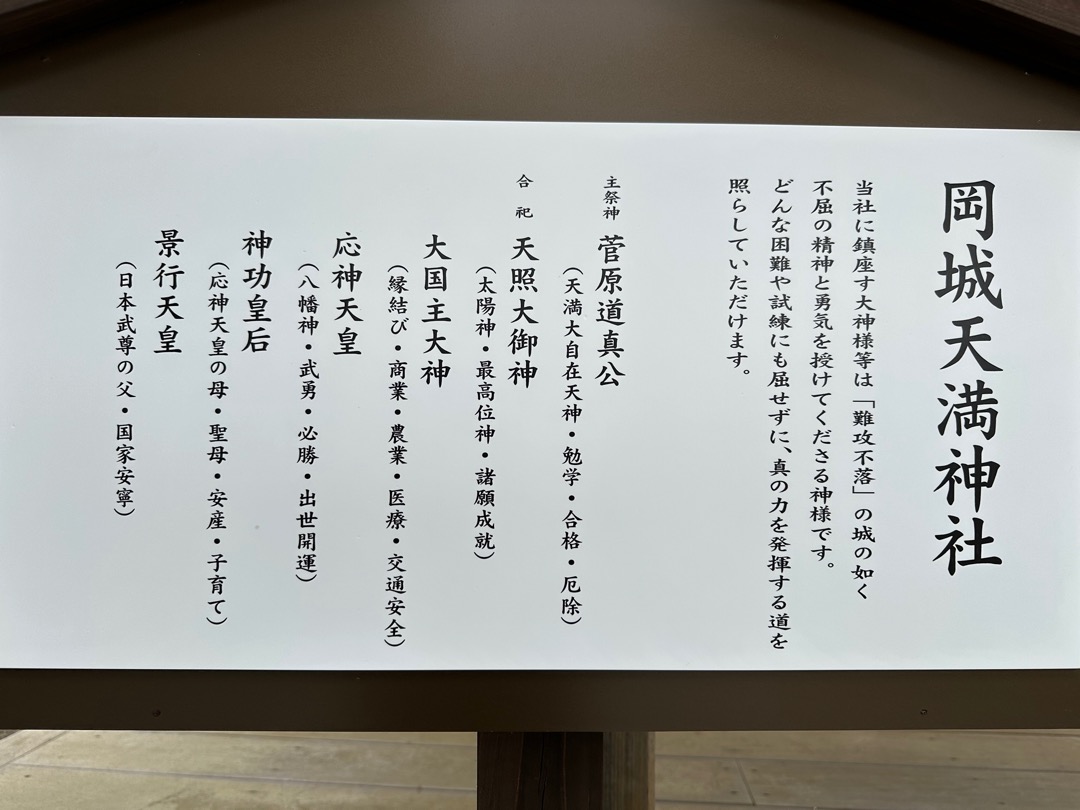 岡城天満神社
当社に鎮座す大神様等は「難攻不落」の城の如く
不屈の精神と勇気を授けてくださる神様です。
どんな困難や試練にも屈せずに、真の力を発揮する道を
照らしていただけます。
主祭神 菅原道真公
（天満大自在天神・勉学・合格・厄除）
合祀 天照大御神
（太陽神・最高位神・諸願成就）
大国主大神
（縁結び・商業・農業・医療・交通安全）
応神天皇
（八幡神・武勇・必勝・出世開運）
神功皇后
（応神天皇の母・聖母・安産・子育て）
景行天皇
（日本武尊の父・国家安寧）